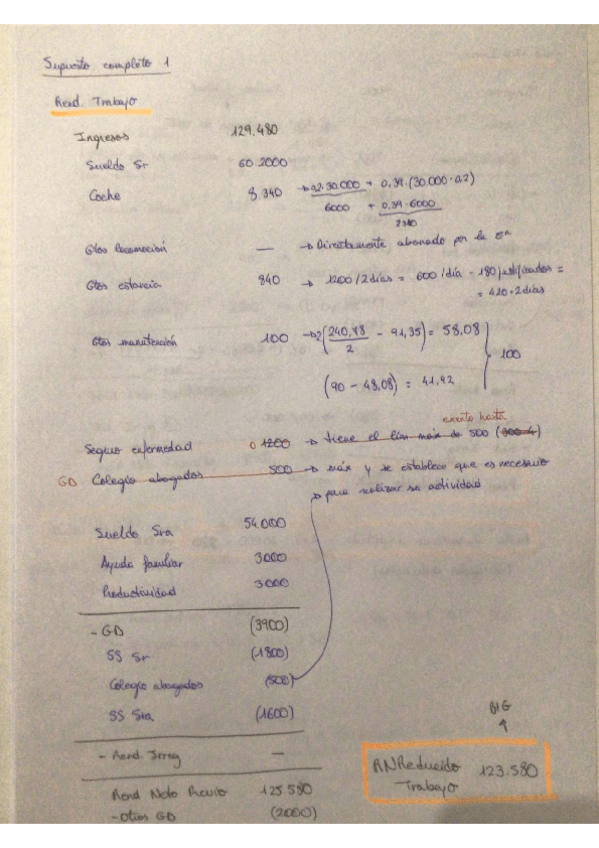 Supuesto completo 1
Rend. Trabajo
Ingresos 129.480
Sueldo Sr 60.2000
Coche 8.340 → 0,2·30.000 + 0,39·(30.000·0,2)
6000 + 0,39·6000
2340
Gtos locomoción — → Directamente abonado por la eª
Gtos estancia 840 → 1200/2días = 600/día - 180 justificados =
= 420·2días
Gtos manutención 100 → 2(240,48/2 - 91,35) = 58,08
100
(90 - 48,08) = 41,92
exento hasta
Seguro enfermedad 0 1200 → tiene el lím máx de 500
GD Colegio abogados 500 → máx y se establece que es necesario
→ para realizar su actividad
Sueldo Sra 54.000
Ayuda familiar 3000
Productividad 3000
- GD (3900)
SS Sr (1800)
Colegio abogados (500)
SS Sra (1600)
BIG
- Rend. Irreg —
RNReducido 123.580
Trabajo
Rend Neto Previo 125.580
- Otros GD (2000)